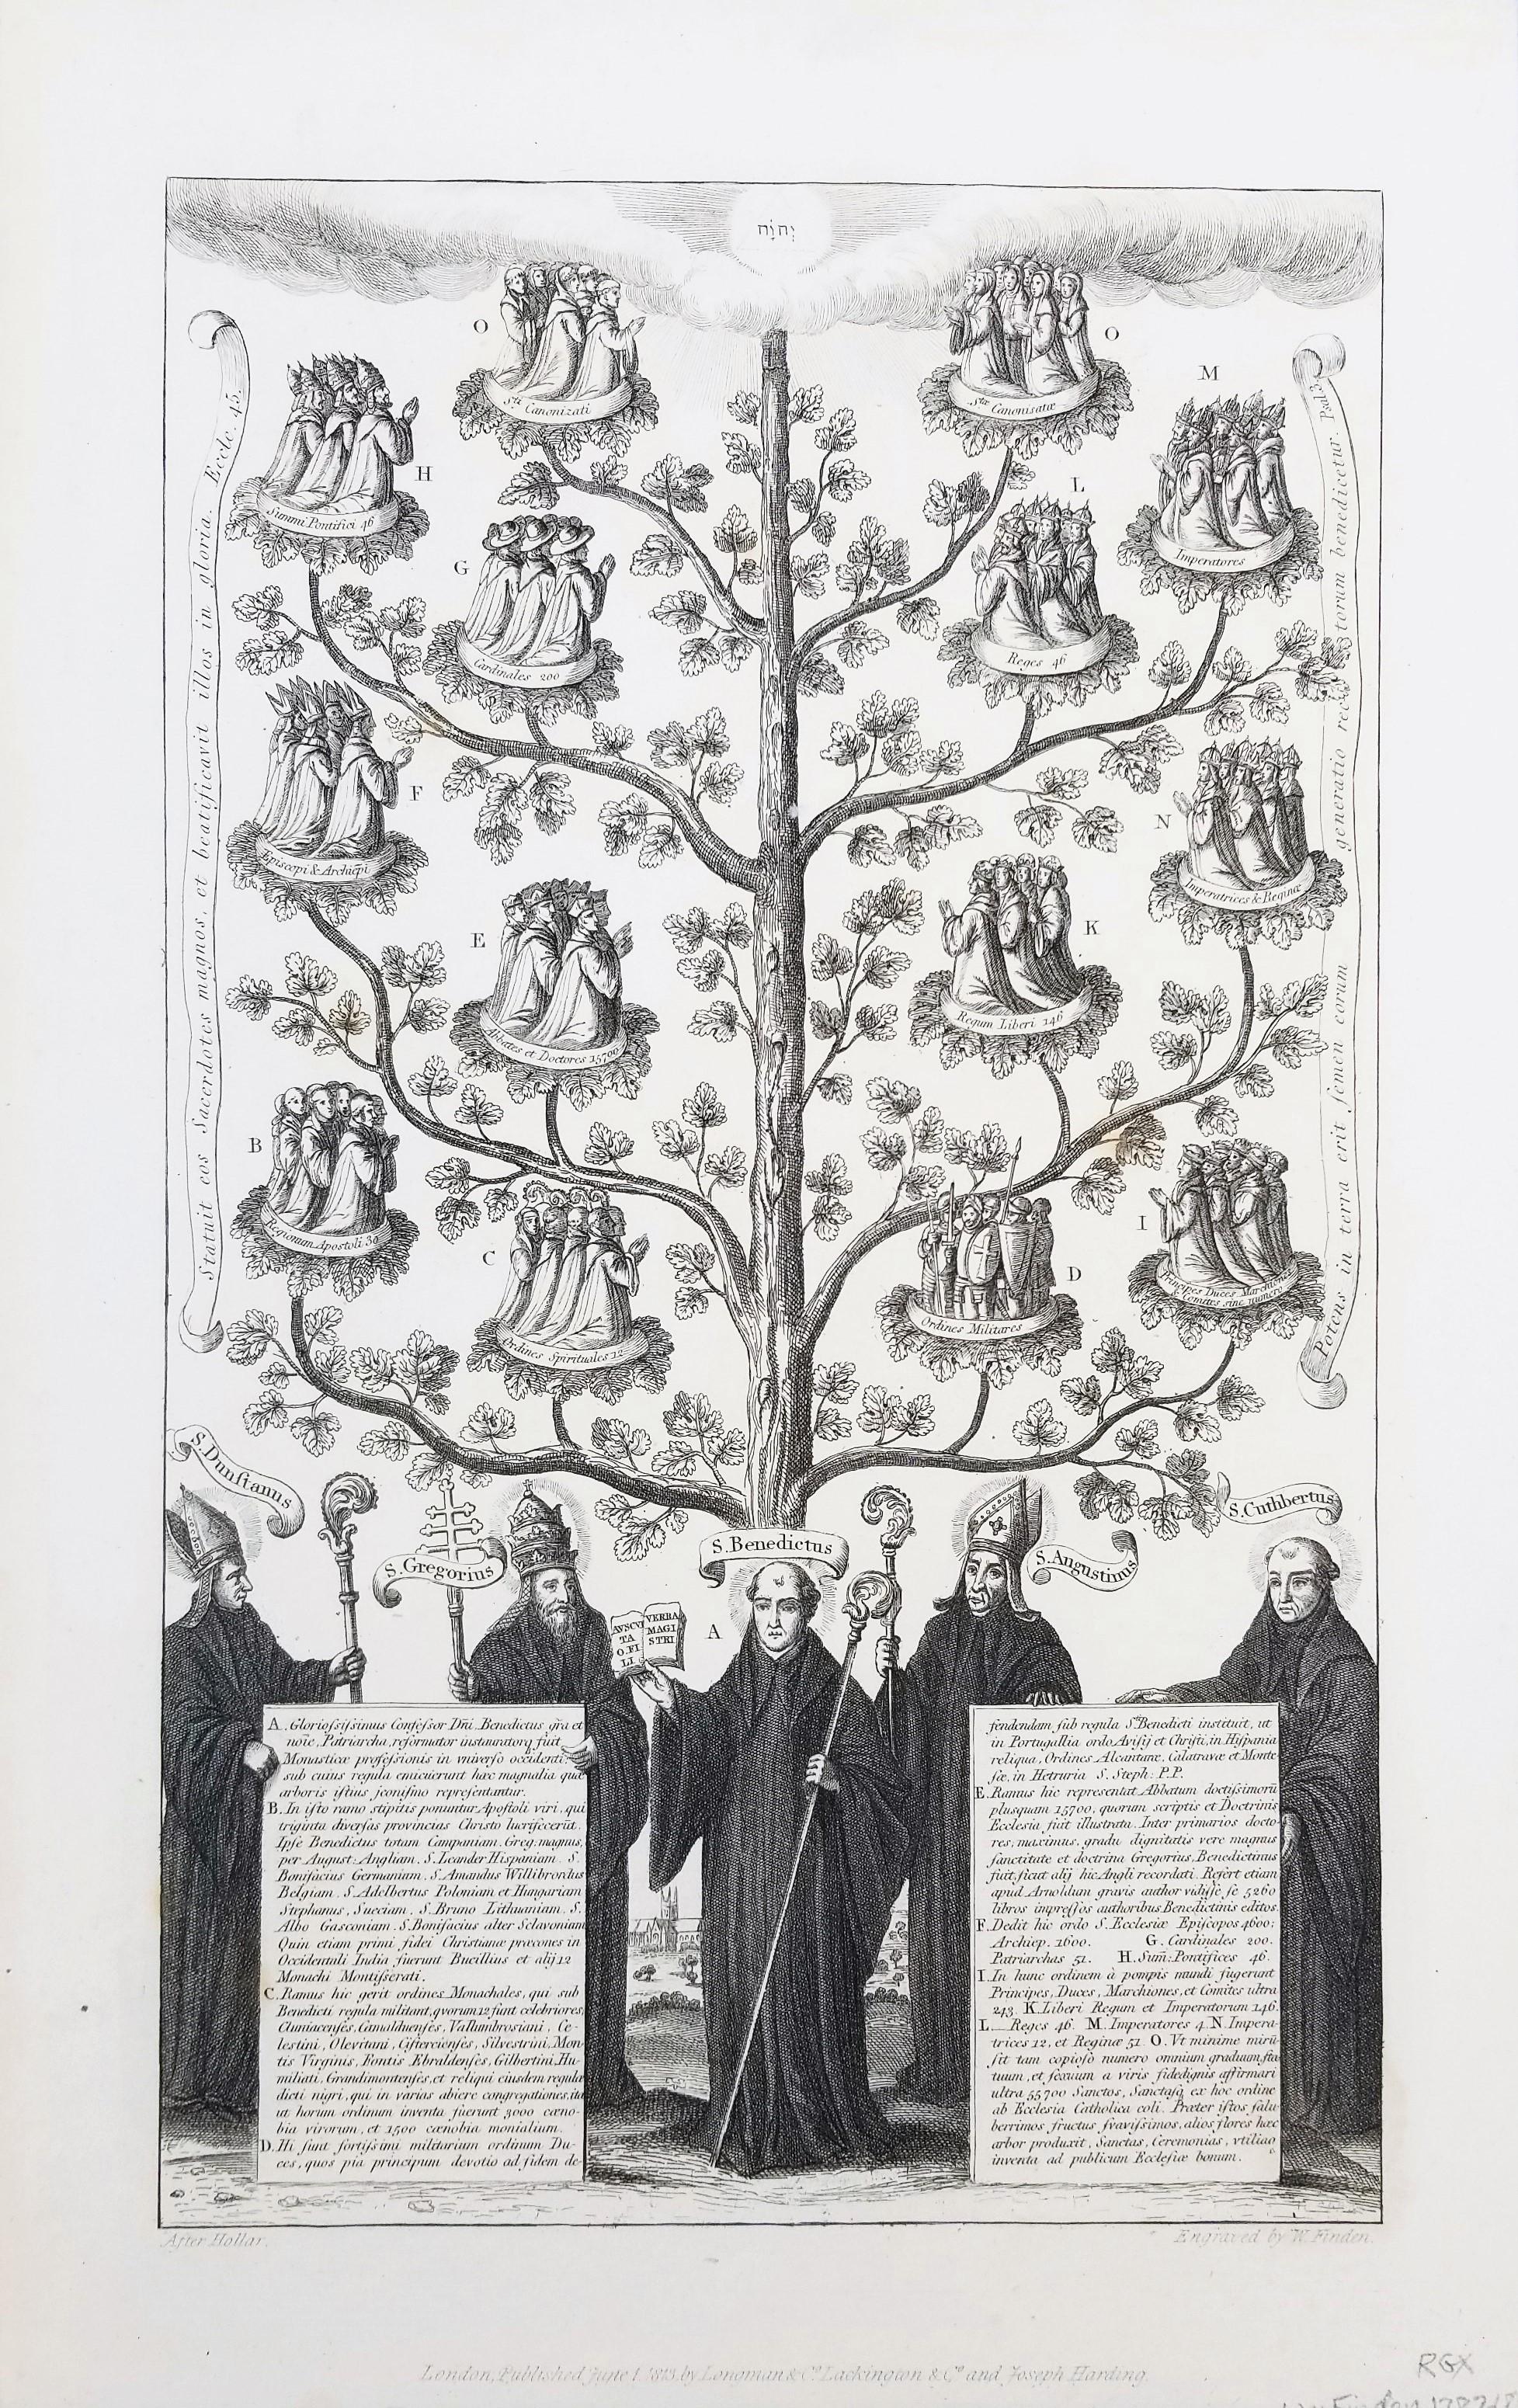 יְהוָֹה
O
O
Sti Canonizati
Stæ Canonisatæ
M
H
L
Summi Pontifici 46
Imperatores
G
Cardinales 200
Reges 46
F
N
Episcopi & Archiepi
Imperatrices & Reginæ
E
K
Abbates et Doctores 15700
Regum Liberi 146
B
I
Regionum Apostoli 30
C
D
Principes Duces Marchiones
& Comites sine numero
Ordines Spirituales 12
Ordines Militares
Statuit eos Sacerdotes magnos, et beatificavit illos in gloria. Eccle. 45.
Potens in terra erit ſemen eorum generatio rectorum benedicetur. Psal.
S. Dunſtanus
S. Gregorius
S. Benedictus
S. Augustinus
S. Cuthbertus
A
AVSCV
TA
O FI
LI
VERBA
MAGI
STRI
A. Glorioſsiſsinus Confeſsor Dn̄i Benedictus gr̄a et
noīe, Patriarcha, reformator instauratorq fuit
Monasticæ profeſsionis in vniverſo occidenti:
sub cuius regula emicuerunt hæc magnalia quæ
arboris iſtius ſconiſmo repreſentantur.
B. In iſto ramo stipitis ponuntur Apoſtoli viri, qui
triginta diverſas provincias Christo lucrifecerūt.
Ipſe Benedictus totam Campaniam. Greg: magnus,
per August: Angliam. S. Leander Hispaniam. S.
Bonifacius Germaniam. S. Amandus Willibrordus
Belgiam. S. Adelbertus Poloniam et Hungariam
Stephanus, Sueciam. S. Bruno Lithuaniam. S.
Albo Gasconiam. S. Bonifacius alter Sclavoniam
Quin etiam primi fidei Christianæ præcones in
Occidentali India fuerunt Buellius et alij 12
Monachi Montiſserati.
C. Ramus hic gerit ordines Monachales, qui sub
Benedicti regula militant, qvorum 12 ſunt celebriores,
Cluniacenſes, Camalduenſes, Vallumbrosiani, Ce-
lestini, Olevitani, Ciſtercienſes, Silvestrini, Mon-
tis Virginis, Fontis Ebraldenſes, Gilbertini, Hu-
miliati, Grandimontenſes, et reliqui eiusdem regulæ
dicti nigri, qui in varias abiere congregationes, ita
ut horum ordinum inventa fuerunt 3000 cœno-
bia virorum, et 1500 cœnobia monialium.
D. Hi ſunt fortiſsimi militarium ordinum Du-
ces, quos pia principum devotio ad fidem de-
fendendam ſub regula Sti Benedicti instituit, ut
in Portugallia ordo Aviſij et Chriſti, in Hiſpania
reliqua, Ordines Alcantaræ, Calatravæ et Monte
ſæ, in Hetruria S. Steph: P.P.
E. Ramus hic representat Abbatum doctiſsimorū
plusquam 15700, quorum scriptis et Doctrinis
Ecclesia fuit illustrata. Inter primarios docto-
res, maximus, gradu dignitatis vere magnus
ſanctitate et doctrina Gregorius, Benedictinus
fuit, ſicut alij hic Angli recordati. Refert etiam
apud Arnoldum gravis author vidiſſe ſe 5260
libros impreſſos authoribus Benedictinis editos.
F. Dedit hic ordo S. Ecclesiæ Epiſcopos 4600:
Archiep. 1600. G. Cardinales 200.
Patriarchas 51. H. Sum̄: Pontifices 46.
I. In hunc ordinem à pompis mundi fugerunt
Principes, Duces, Marchiones, et Comites ultra
243. K. Liberi Regum et Imperatorum 146.
L. Reges 46. M. Imperatores 4. N. Impera-
trices 12, et Reginæ 51. O. Vt minime mirū
ſit tam copioſo numero omnium graduum, ſta
tuum, et ſexuum a viris fidedignis affirmari
ultra 55700 Sanctos, Sanctaſq ex hoc ordine
ab Ecclesia Catholica coli. Præter iſtos ſalu-
berrimos fructus ſvaviſsimos, alios flores hæc
arbor produxit, Sanctas, Ceremonias, vtiliaq
inventa ad publicum Ecclesiæ bonum.
After Hollar.
Engraved by W. Finden.
London, Published June 1. 1813. by Longman & Co. Lackington & Co. and Joseph Harding.
RGX